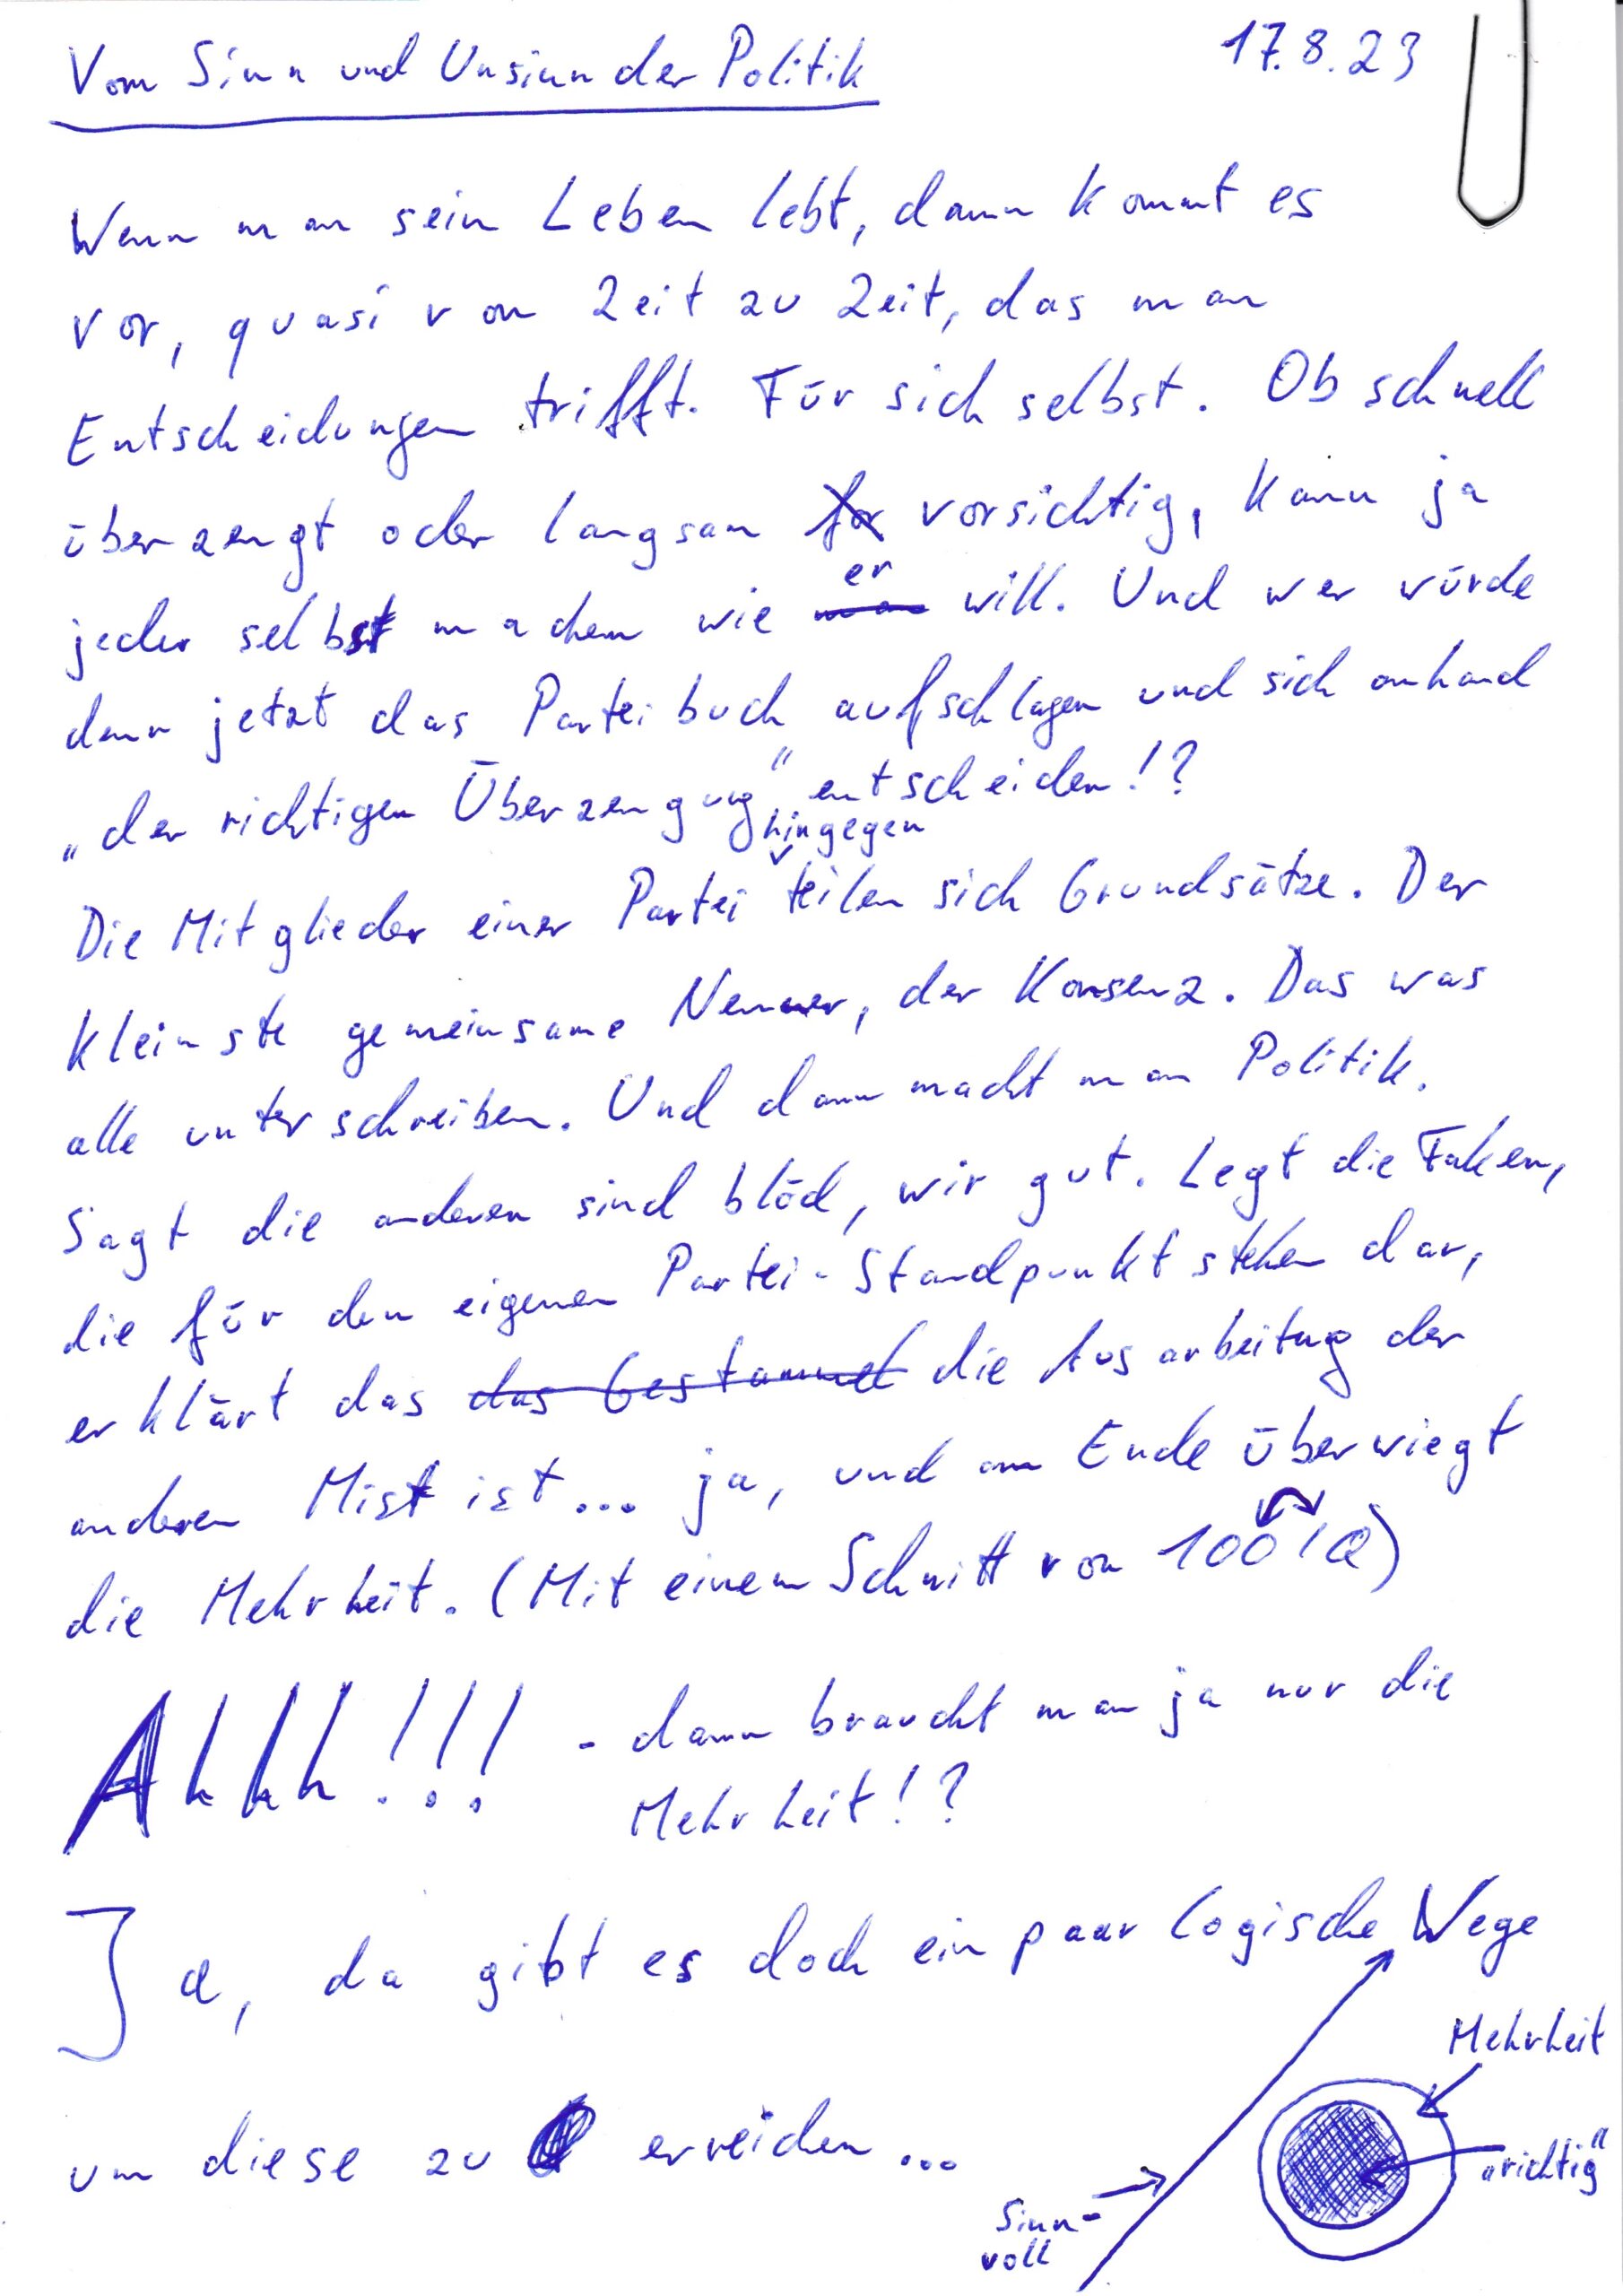 Vom Sinn und Unsinn der Politik 17.8.23
Wenn man sein Leben lebt, dann kommt es
vor, quasi von Zeit zu Zeit, das man
Entscheidungen trifft. Für sich selbst. Ob schnell
überzeugt oder langsam for vorsichtig, kann ja
er
jeder selbst machen wie man will. Und wer würde
denn jetzt das Parteibuch aufschlagen und sich anhand
„der richtigen Überzeugung" entscheiden!?
hingegen
Die Mitglieder einer Partei teilen sich Grundsätze. Der
kleinste gemeinsame Nenner, der Konsenz. Das was
alle unterschreiben. Und dann macht man Politik.
Sagt die anderen sind blöd, wir gut. Legt die Faken,
die für den eigenen Partei-Standpunkt stehen dar,
erklärt das das Gestammel die Ausarbeitung der
anderen Mist ist... ja, und am Ende überwiegt
die Mehrheit. (Mit einem Schnitt von 100 IQ)
Ahhh!!! - dann braucht man ja nur die
Mehrheit!?
Ja, da gibt es doch ein paar logische Wege
um diese zu erreichen...
Mehrheit
„richtig"
Sinn-
voll